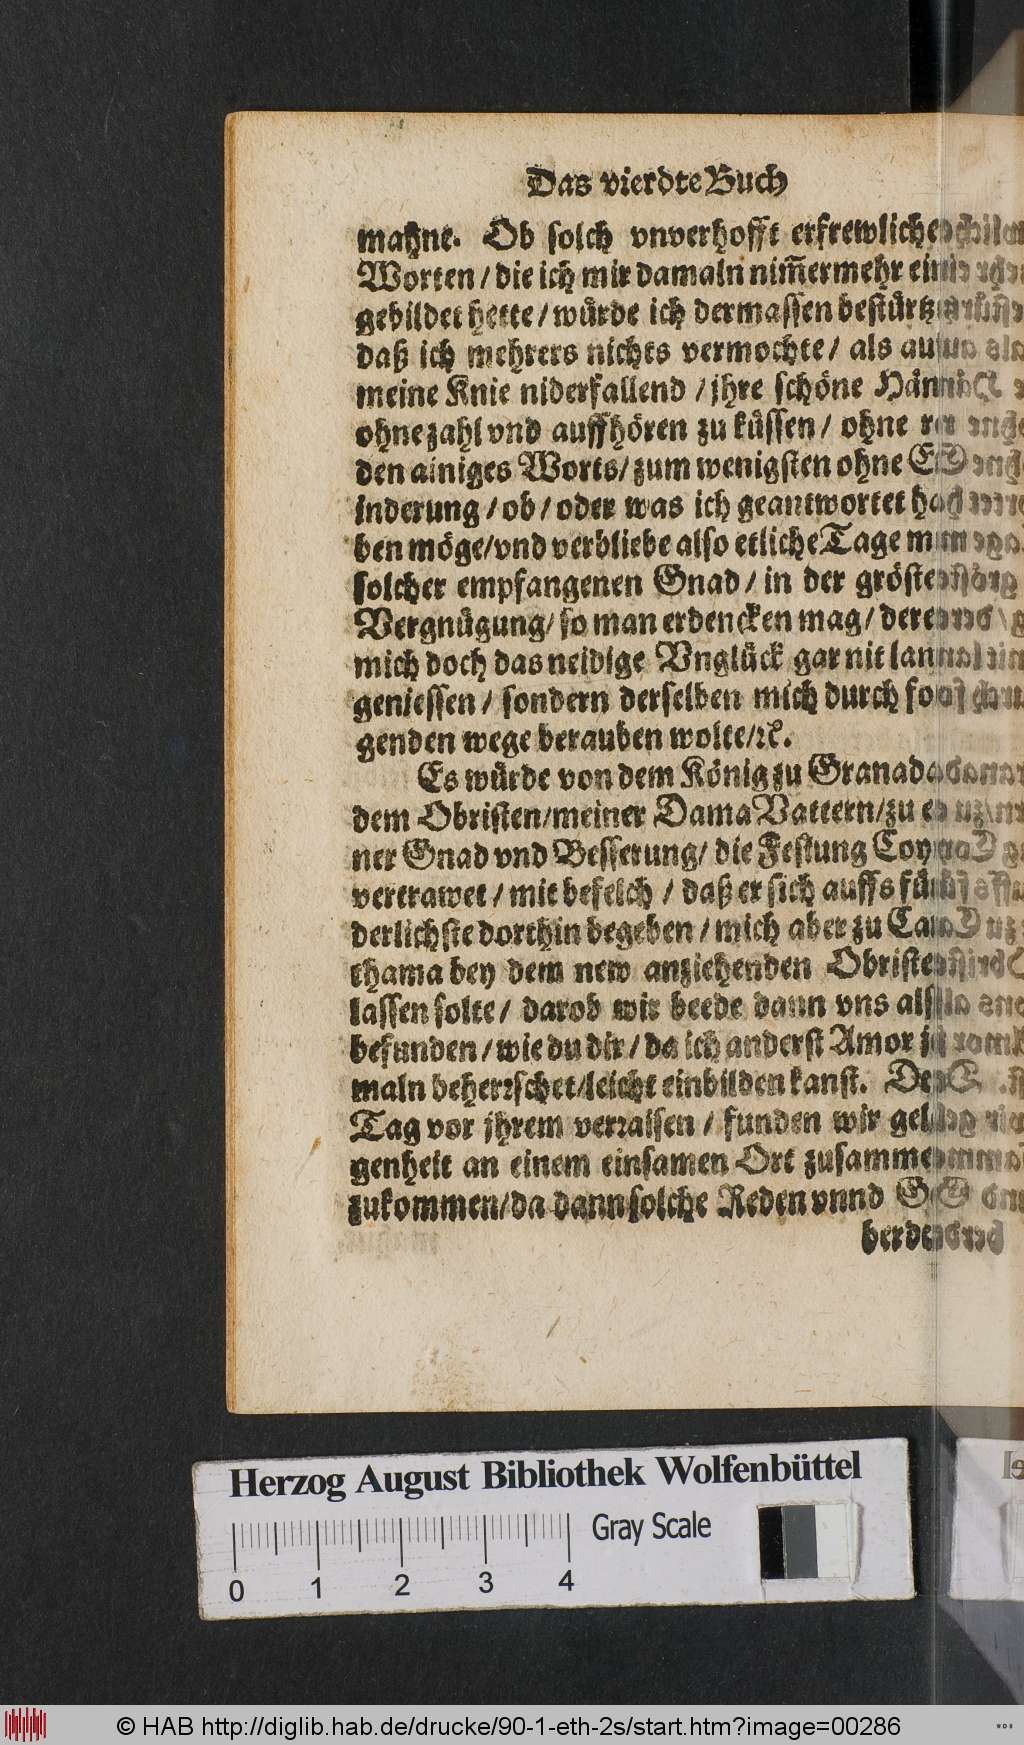 Das vierdte Buch
mahne. Ob solch vnverhofft erfrewliche
Worten / die ich mir damaln nim̃ermehr
gebildet hette / würde ich dermassen bestürtz
daß ich mehrers nichts vermochte / als
meine Knie niderfallend / jhre schöne
ohne zahl vnd auffhören zu küssen / ohne
den ainiges Worts / zum wenigsten ohne
inderung / ob / oder was ich geantwortet
ben möge / vnd verbliebe also etliche Tage
solcher empfangenen Gnad / in der gröste
Vergnügung / so man erdencken mag / deren
mich doch das neidige Vnglück gar nit
geniessen / sondern derselben mich durch
genden wege berauben wolte / ꝛc.
Es würde von dem König zu Granada
dem Obristen / meiner Dama Vattern / zu
ner Gnad vnd Besserung / die Festung
vertrawet / mit befelch / daß er sich auffs
derlichste dorthin begeben / mich aber zu
thama bey dem new anziehenden Obristen
lassen solte / darob wir beede dann vns
befunden / wie du dir / da ich anderst Amor
maln beherrschet / leicht einbilden kanst. Den
Tag vor jhrem verraisen / funden wir
genheit an einem einsamen Ort zusammen
zukommen / da dann solche Reden vnnd
berd
Herzog August Bibliothek Wolfenbüttel
Gray Scale
0 1 2 3 4
© HAB http://diglib.hab.de/drucke/90-1-eth-2s/start.htm?image=00286